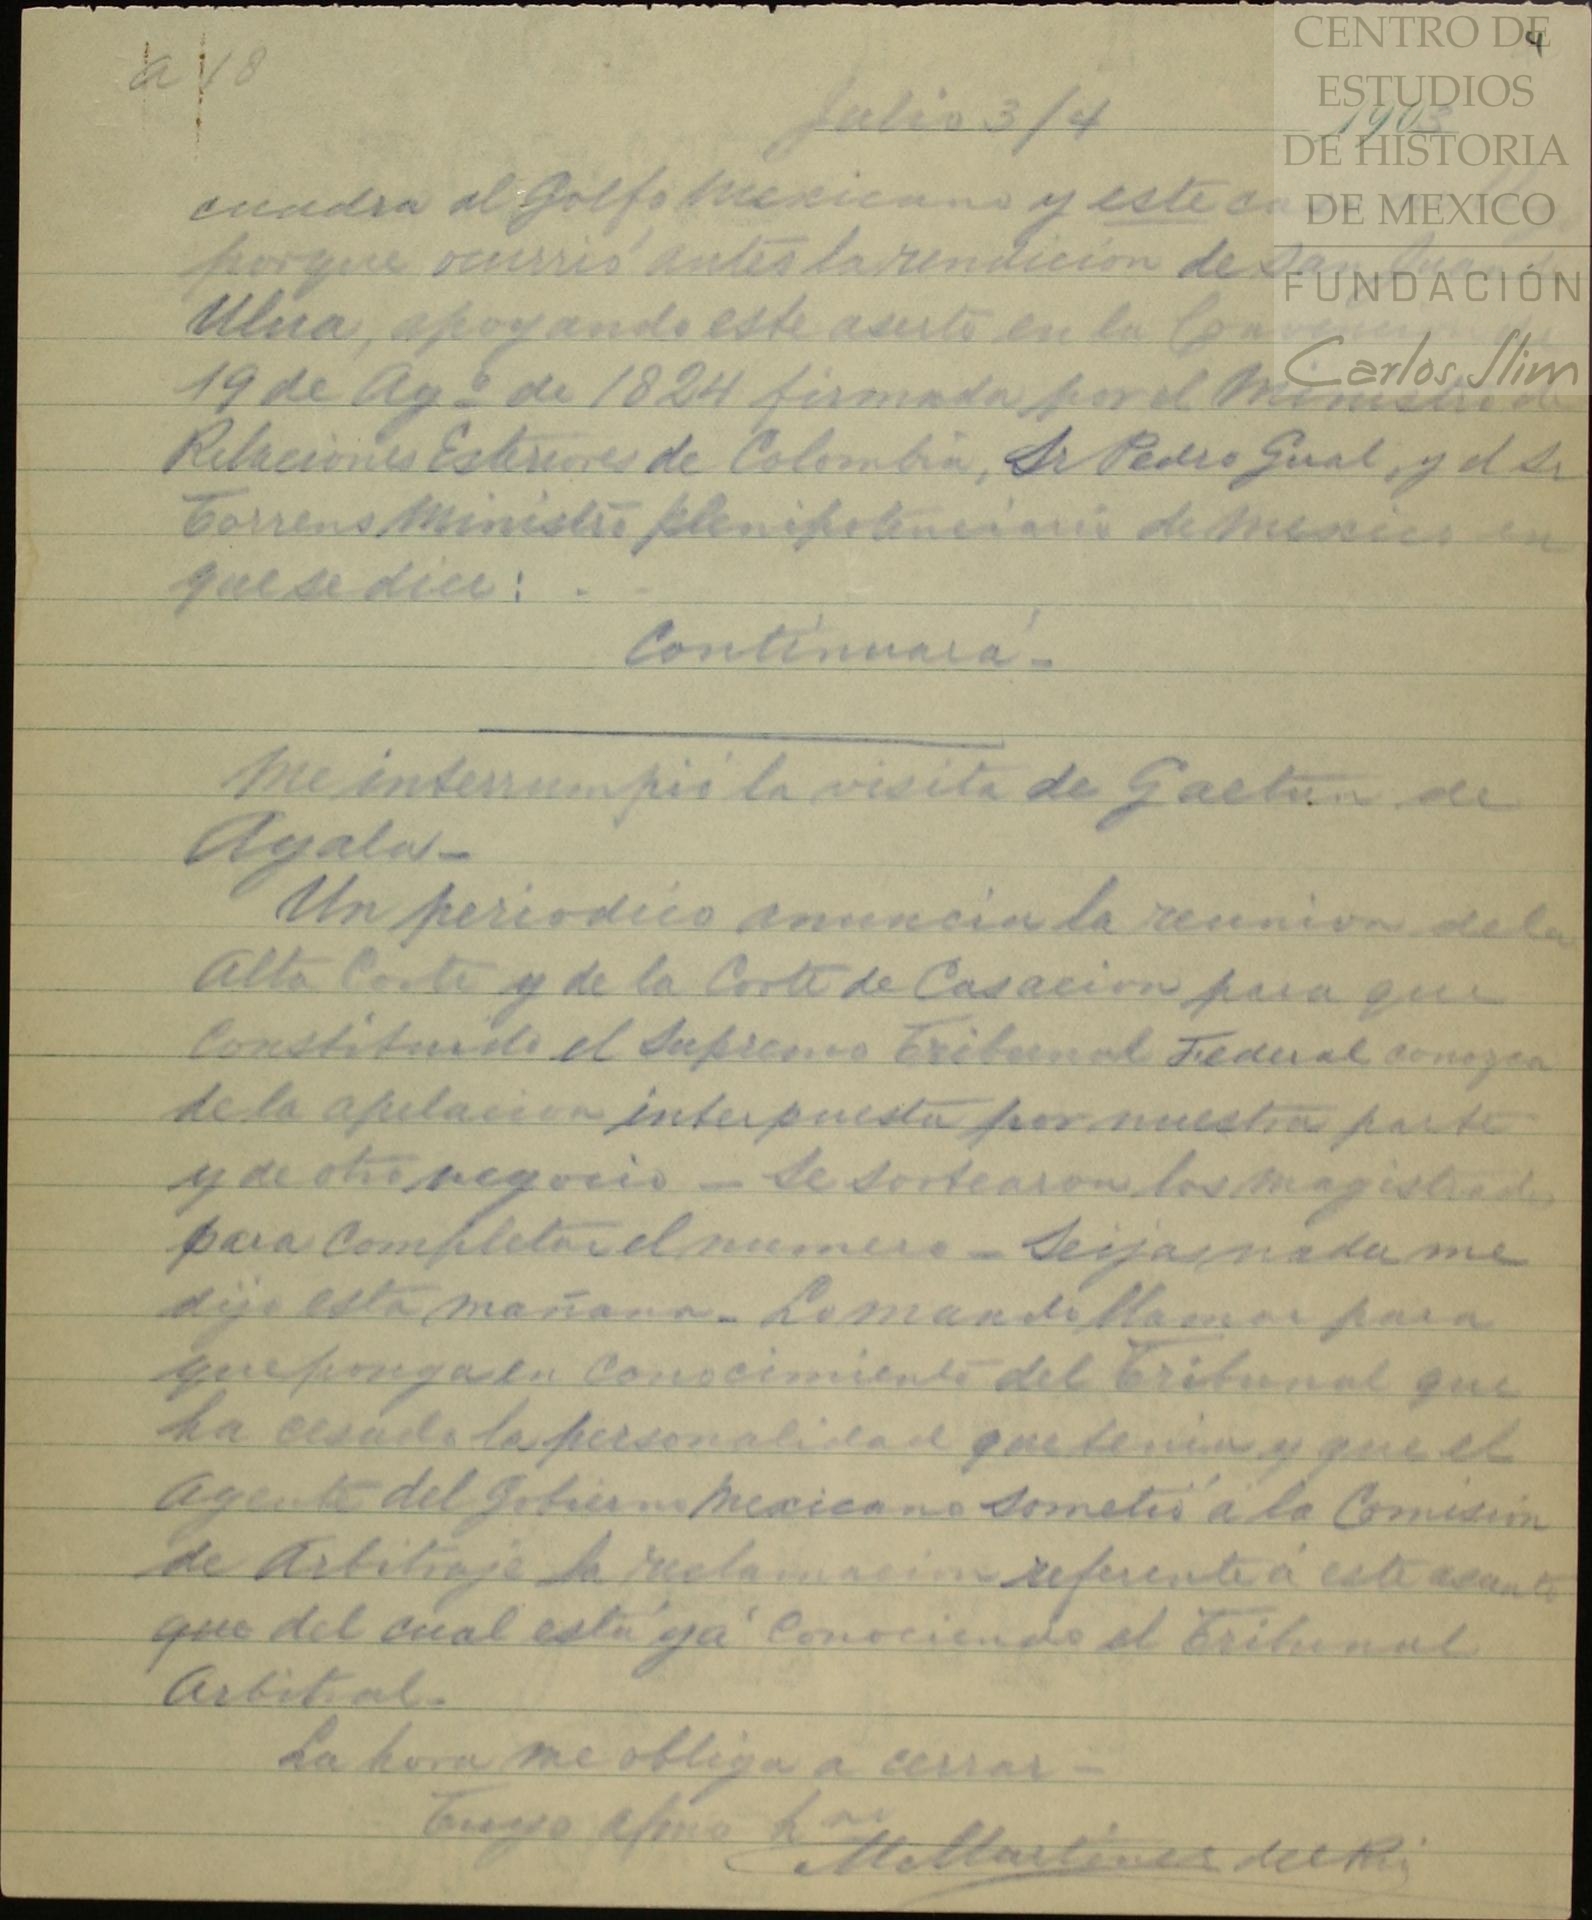 a 18
4
CENTRO DE
ESTUDIOS
DE HISTORIA
DE MEXICO
FUNDACIÓN
Carlos Slim
Julio 3/4 1903
cuadra al Golfo Mexicano y este
porque ocurrió antes la rendicion de San Juan de
Ulua, apoyando este aserto en la Convencion de
19 de Agº de 1824 firmada por el Ministro de
Relaciones Esteriores de Colombia, Sr Pedro Gual, y el Sr
Torrens Ministro plenipotenciario de Mexico en
que se dice: . -
Continuará -
Me interrumpió la visita de Gaetan de
Ayala -
Un periodico anuncia la reunion de la
Alta Corte y de la Corte de Casacion para que
constituido el Supremo Tribunal Federal conozca
de la apelacion interpuesta por nuestra parte
y de otro negocio - Se sortearon los magistrados
para completar el numero - Seijas nada me
dijo esta mañana - Lo mando llamar para
que ponga en conocimiento del Tribunal que
ha cesado la personalidad que tenia y que el
Agente del Gobierno Mexicano sometió á la Comision
de Arbitraje la reclamacion referente á este asunto
que del cual está yá conociendo el Tribunal
Arbitral -
La hora me obliga a cerrar -
Tuyo afmo hno
M. Martinez del Rio